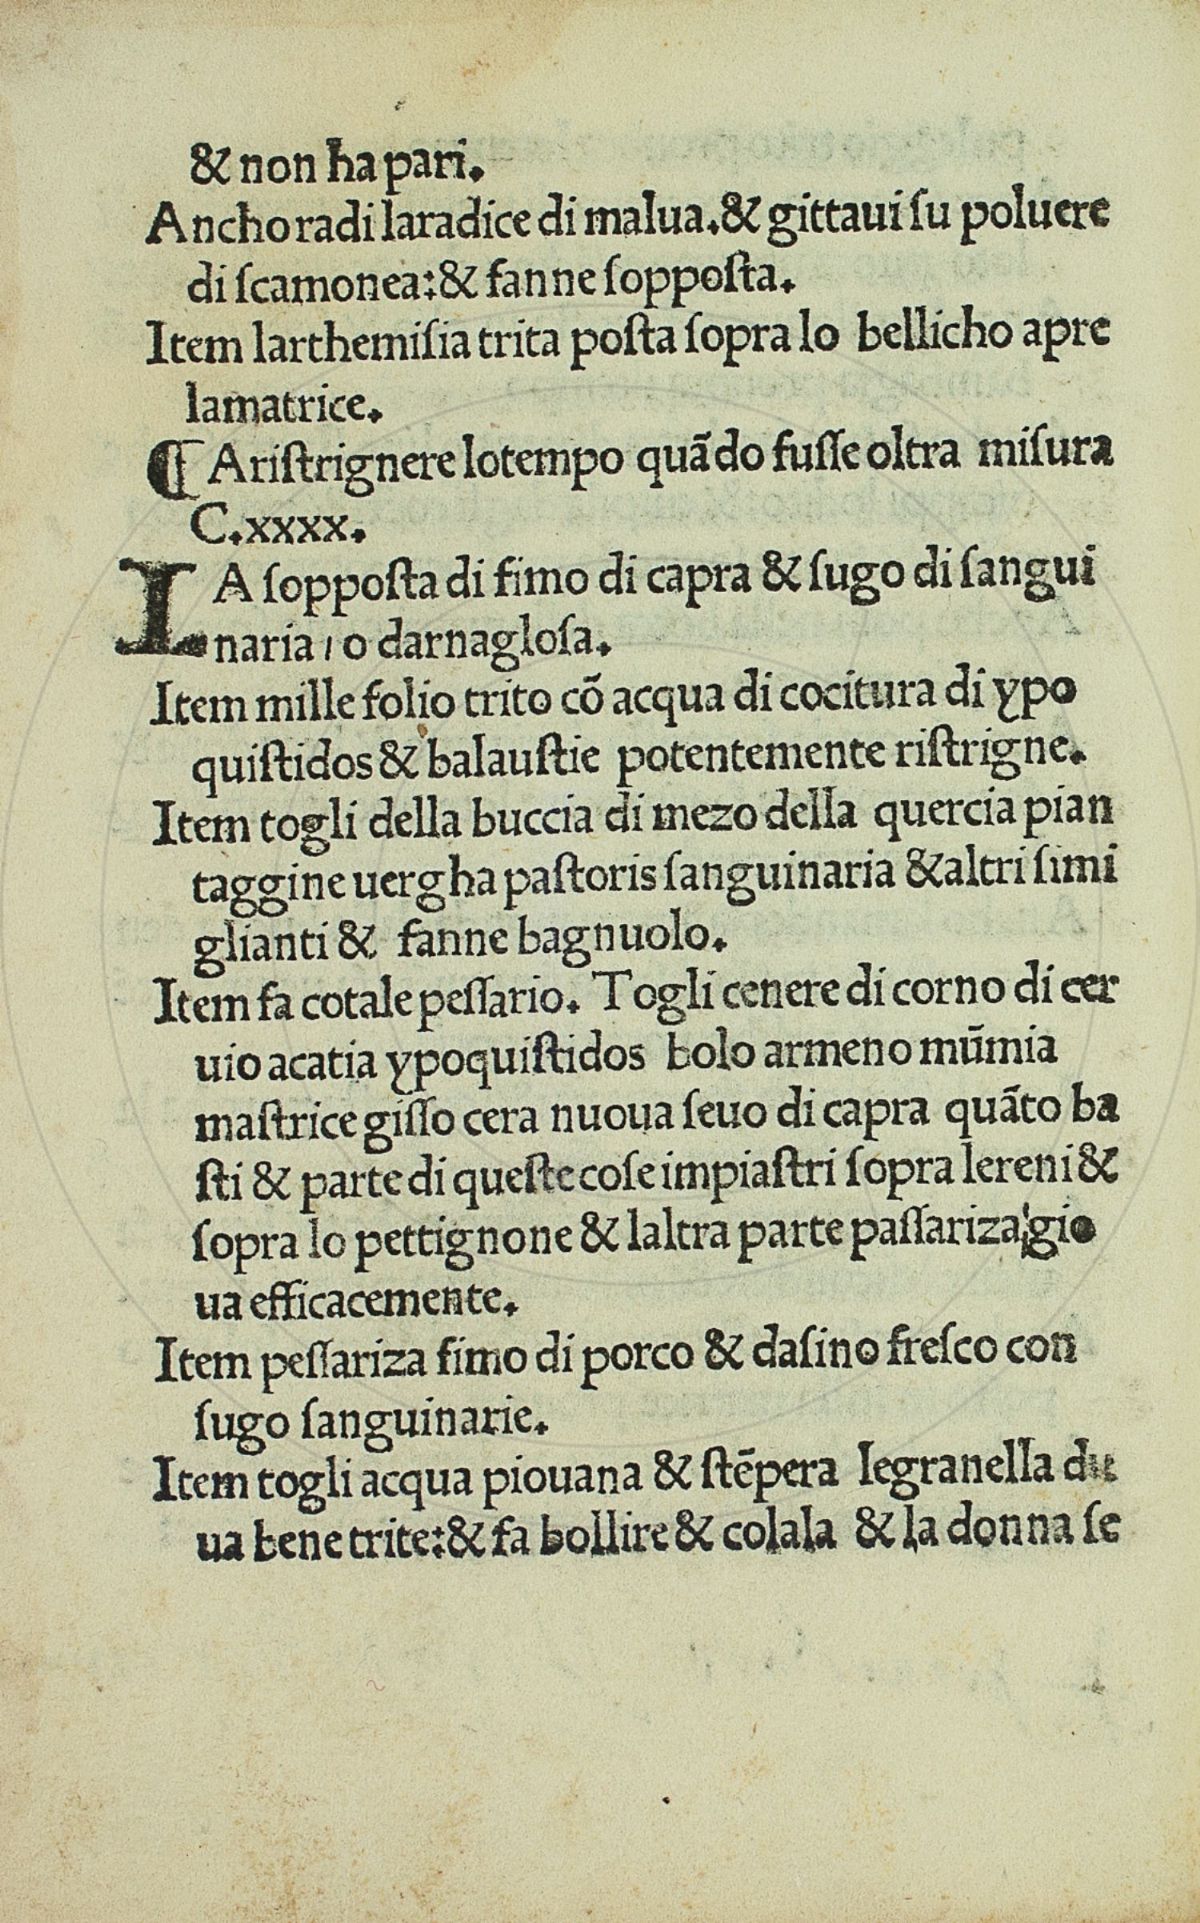 & non ha pari.
Anchoradi laradice di malua.& gittaui ſu poluere
di ſcamonea:& fanne ſoppoſta.
Item larthemiſia trita poſta ſopra lo bellicho apre
lamatrice.
¶ Ariſtrignere lotempo quãdo fuſſe oltra miſura
C.xxxx.
LA ſoppoſta di fimo di capra & ſugo di ſangui
naria, o darnagloſa.
Item mille folio trito cõ acqua di cocitura di ypo
quiſtidos & balauſtie potentemente riſtrigne.
Item togli della buccia di mezo della quercia pian
taggine uergha paſtoris ſanguinaria &altri ſimi
glianti & fanne bagnuolo.
Item fa cotale peſſario. Togli cenere di corno di cer
uio acatia ypoquiſtidos bolo armeno mũmia
maſtrice giſſo cera nuoua ſeuo di capra quãto ba
ſti & parte di queſte coſe impiaſtri ſopra lereni &
ſopra lo pettignone & laltra parte paſſariza gio
ua efficacemente.
Item peſſariza fimo di porco & daſino freſco con
ſugo ſanguinarie.
Item togli acqua piouana & ſtẽpera legranella du
ua bene trite:& fa bollire & colala & la donna ſe